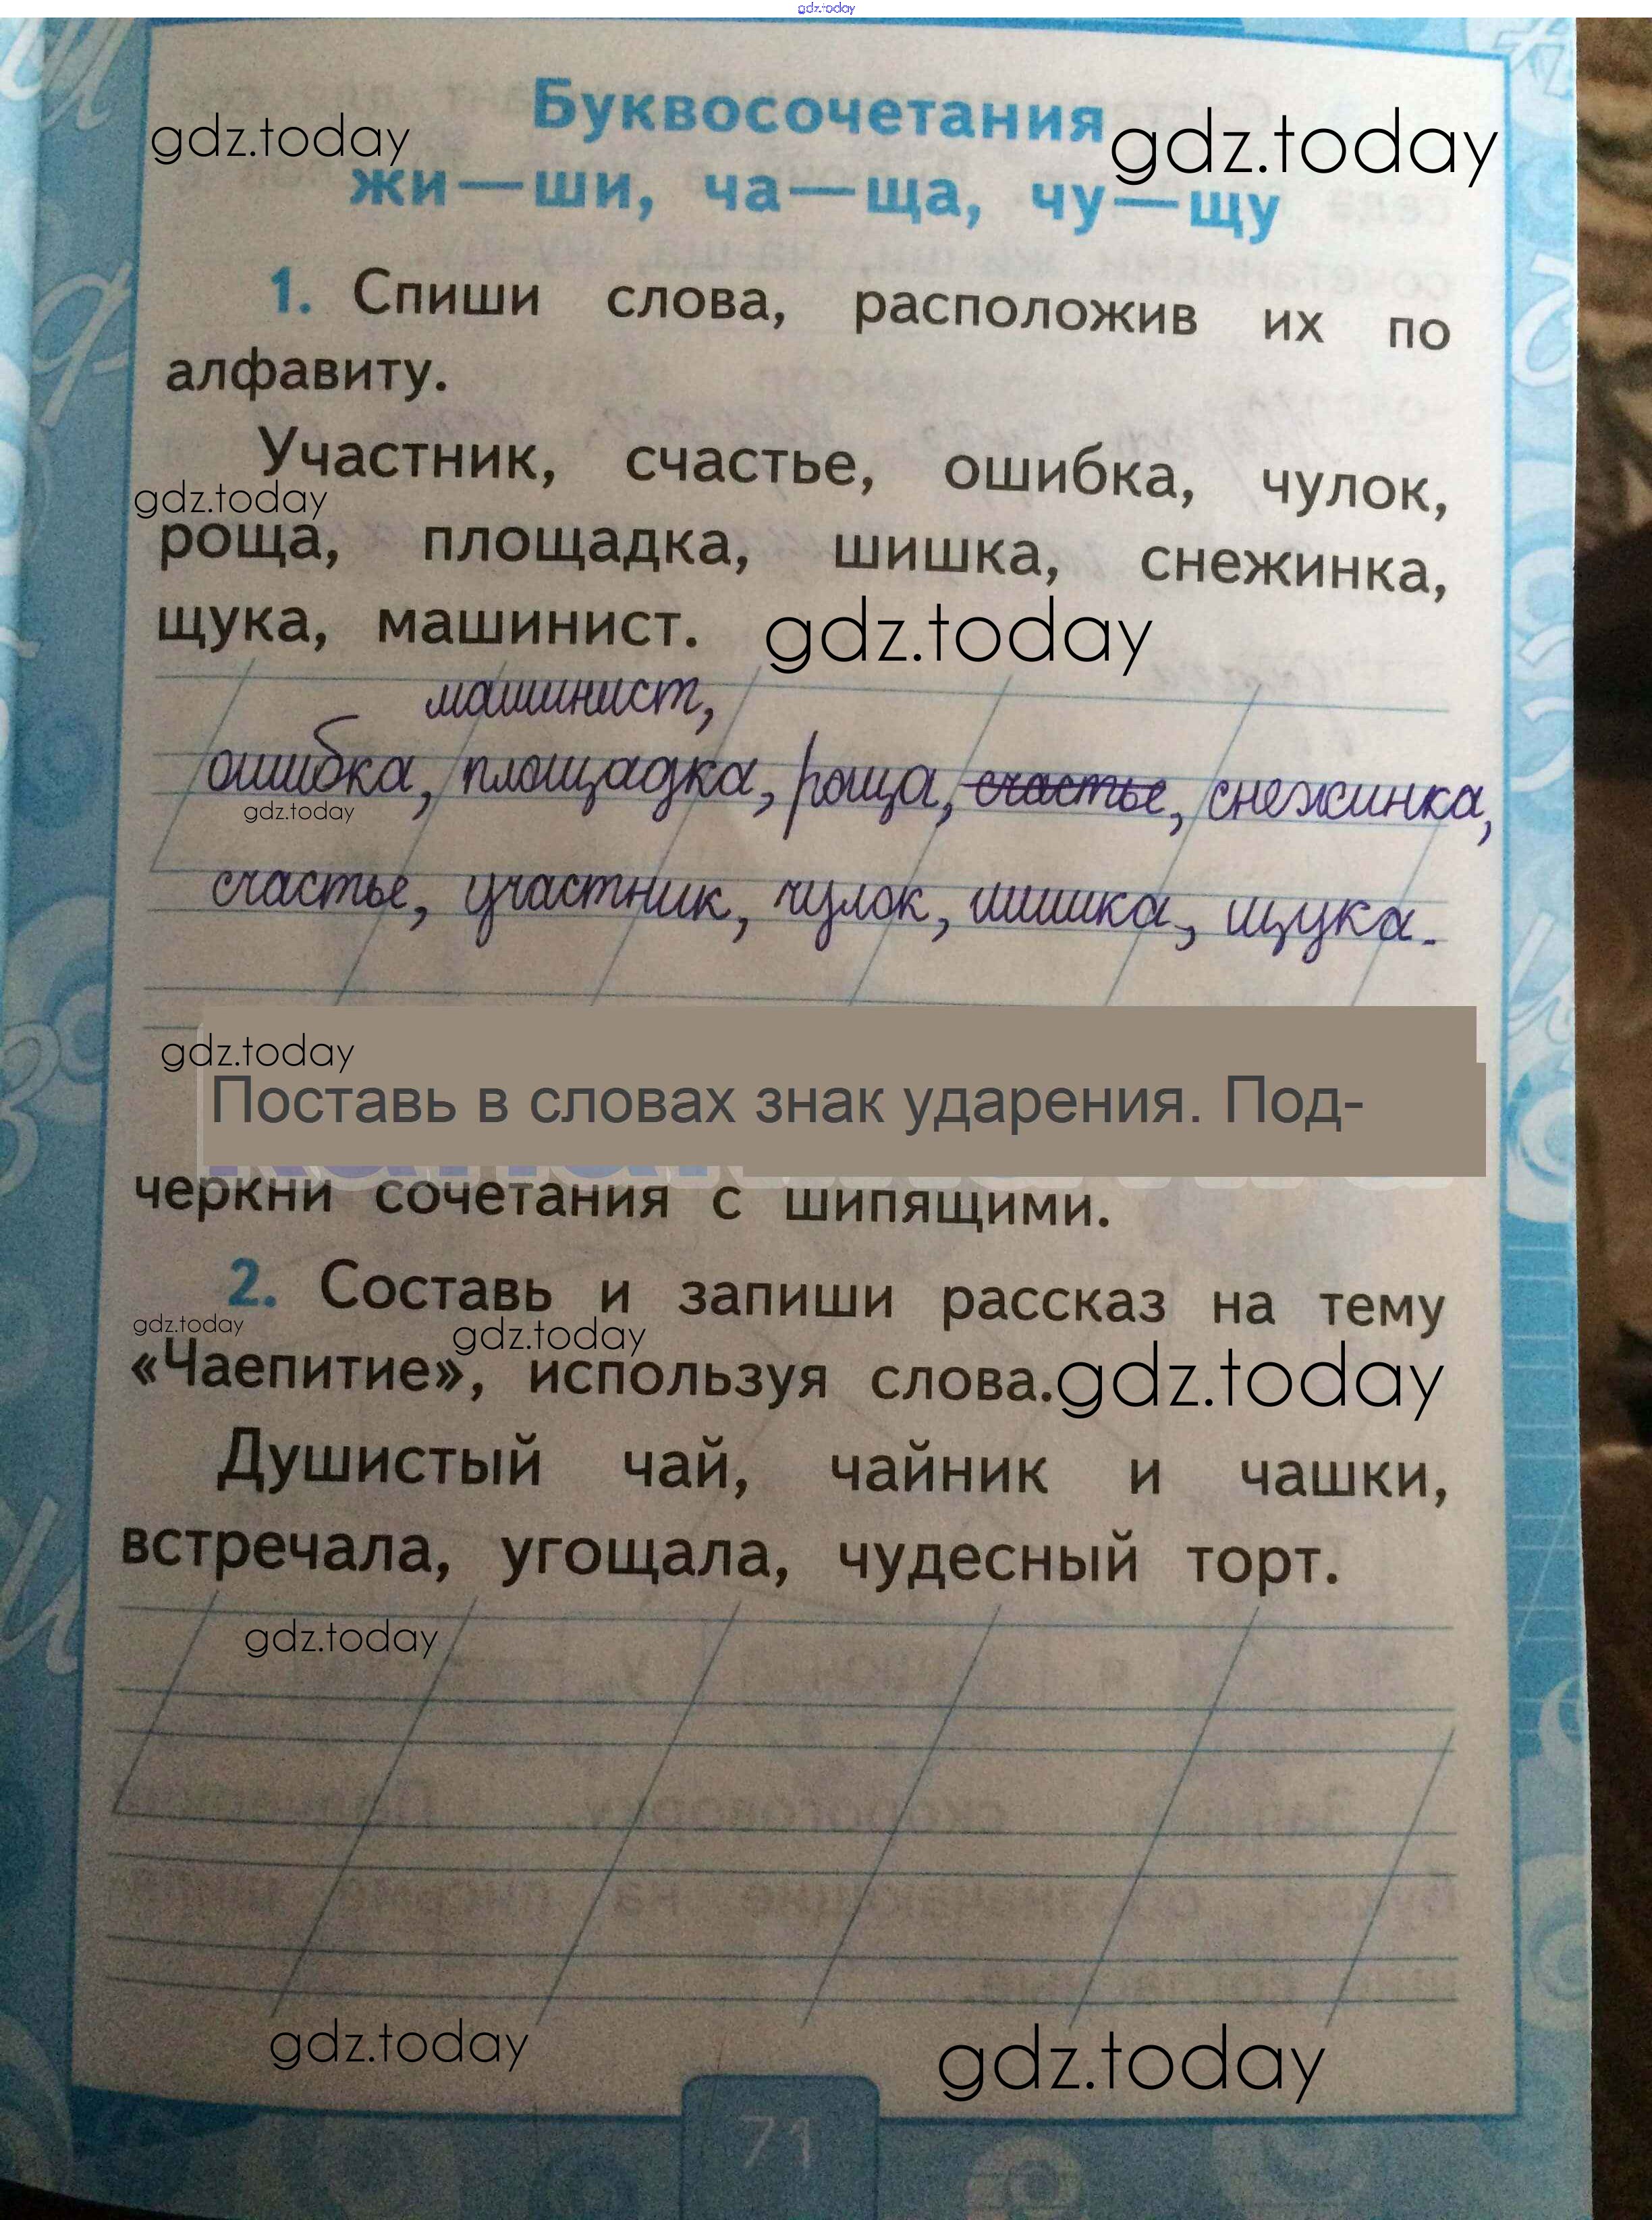 gdz.today
Буквосочетания
gdz.today
gdz.today
жи — ши, ча — ща, чу — щу
1. Спиши слова, расположив их по
алфавиту.
Участник, счастье, ошибка, чулок,
gdz.today
роща, площадка, шишка, снежинка,
щука, машинист.
gdz.today
машинист,
ошибка, площадка, роща, счастье, снежинка,
gdz.today
счастье, участник, чулок, шишка, щука.
gdz.today
Поставь в словах знак ударения. Под-
черкни сочетания с шипящими.
2. Составь и запиши рассказ на тему
gdz.today
gdz.today
«Чаепитие», используя слова.
gdz.today
Душистый чай, чайник и чашки,
встречала, угощала, чудесный торт.
gdz.today
gdz.today
gdz.today
71